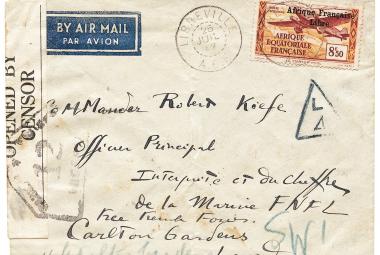 BY AIR MAIL
PAR AVION
LIBREVILLE
JUIL
Afrique Française
Libre
AFRIQUE
EQUATORIALE
FRANÇAISE
8f50
OPENED BY
CENSOR
CoMMander Robert Kiefe
Officier Principal
Interprète et du chiffre
de la Marine FNFL
Free French Forces
Carlton Gardens
SW1